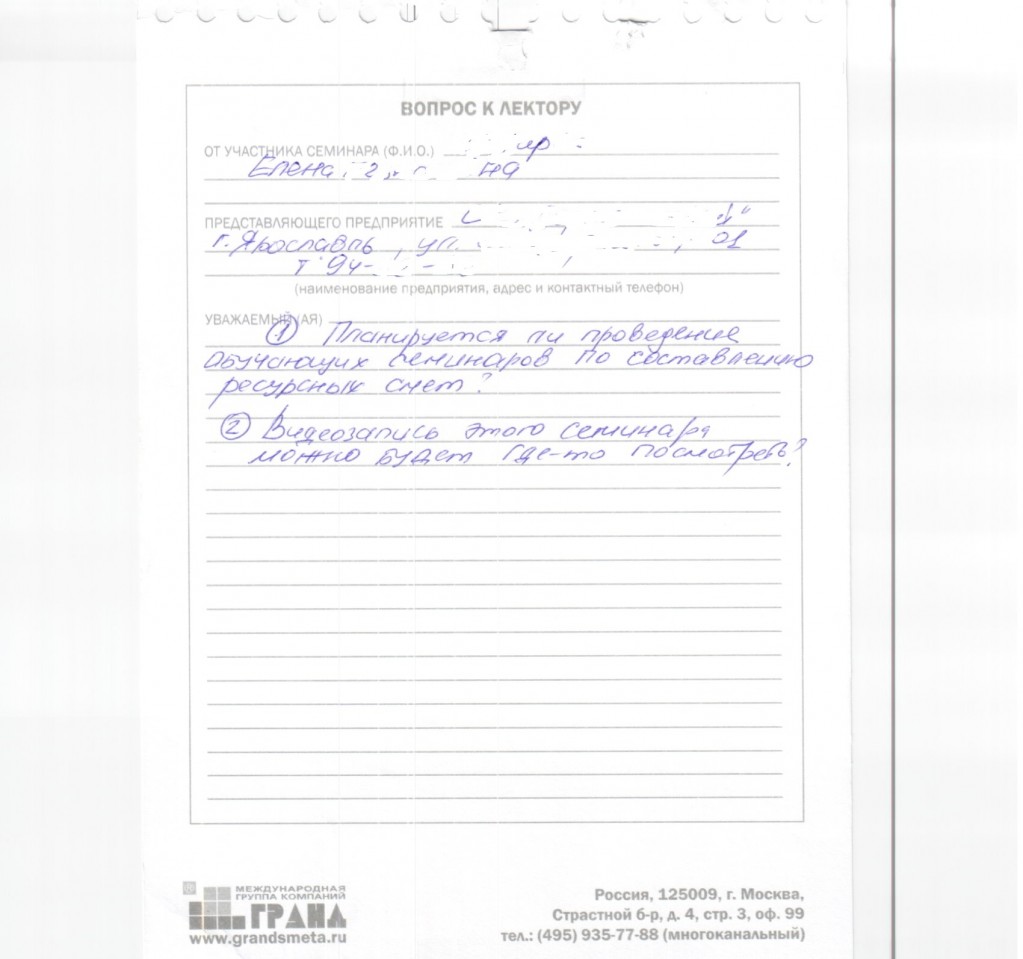 ВОПРОС К ЛЕКТОРУ
ОТ УЧАСТНИКА СЕМИНАРА (Ф.И.О.)
Елена
ПРЕДСТАВЛЯЮЩЕГО ПРЕДПРИЯТИЕ
г. Ярославль, ул.
т. 94-
(наименование предприятия, адрес и контактный телефон)
УВАЖАЕМЫЙ(АЯ)
① Планируется ли проведение
обучающих семинаров по составлению
ресурсных смет?
② Видеозапись этого семинара
можно будет где-то посмотреть?
МЕЖДУНАРОДНАЯ
ГРУППА КОМПАНИЙ
ГРАНД
www.grandsmeta.ru
Россия, 125009, г. Москва,
Страстной б-р, д. 4, стр. 3, оф. 99
тел.: (495) 935-77-88 (многоканальный)